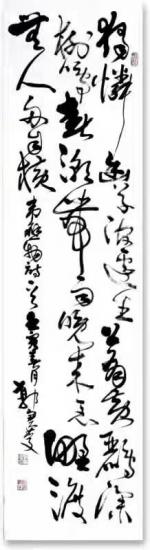 獨憐幽草澗邊生上有黄鸝深
樹鳴春潮帶雨晚来急野渡
無人舟自横 韋應物詩 寅春月